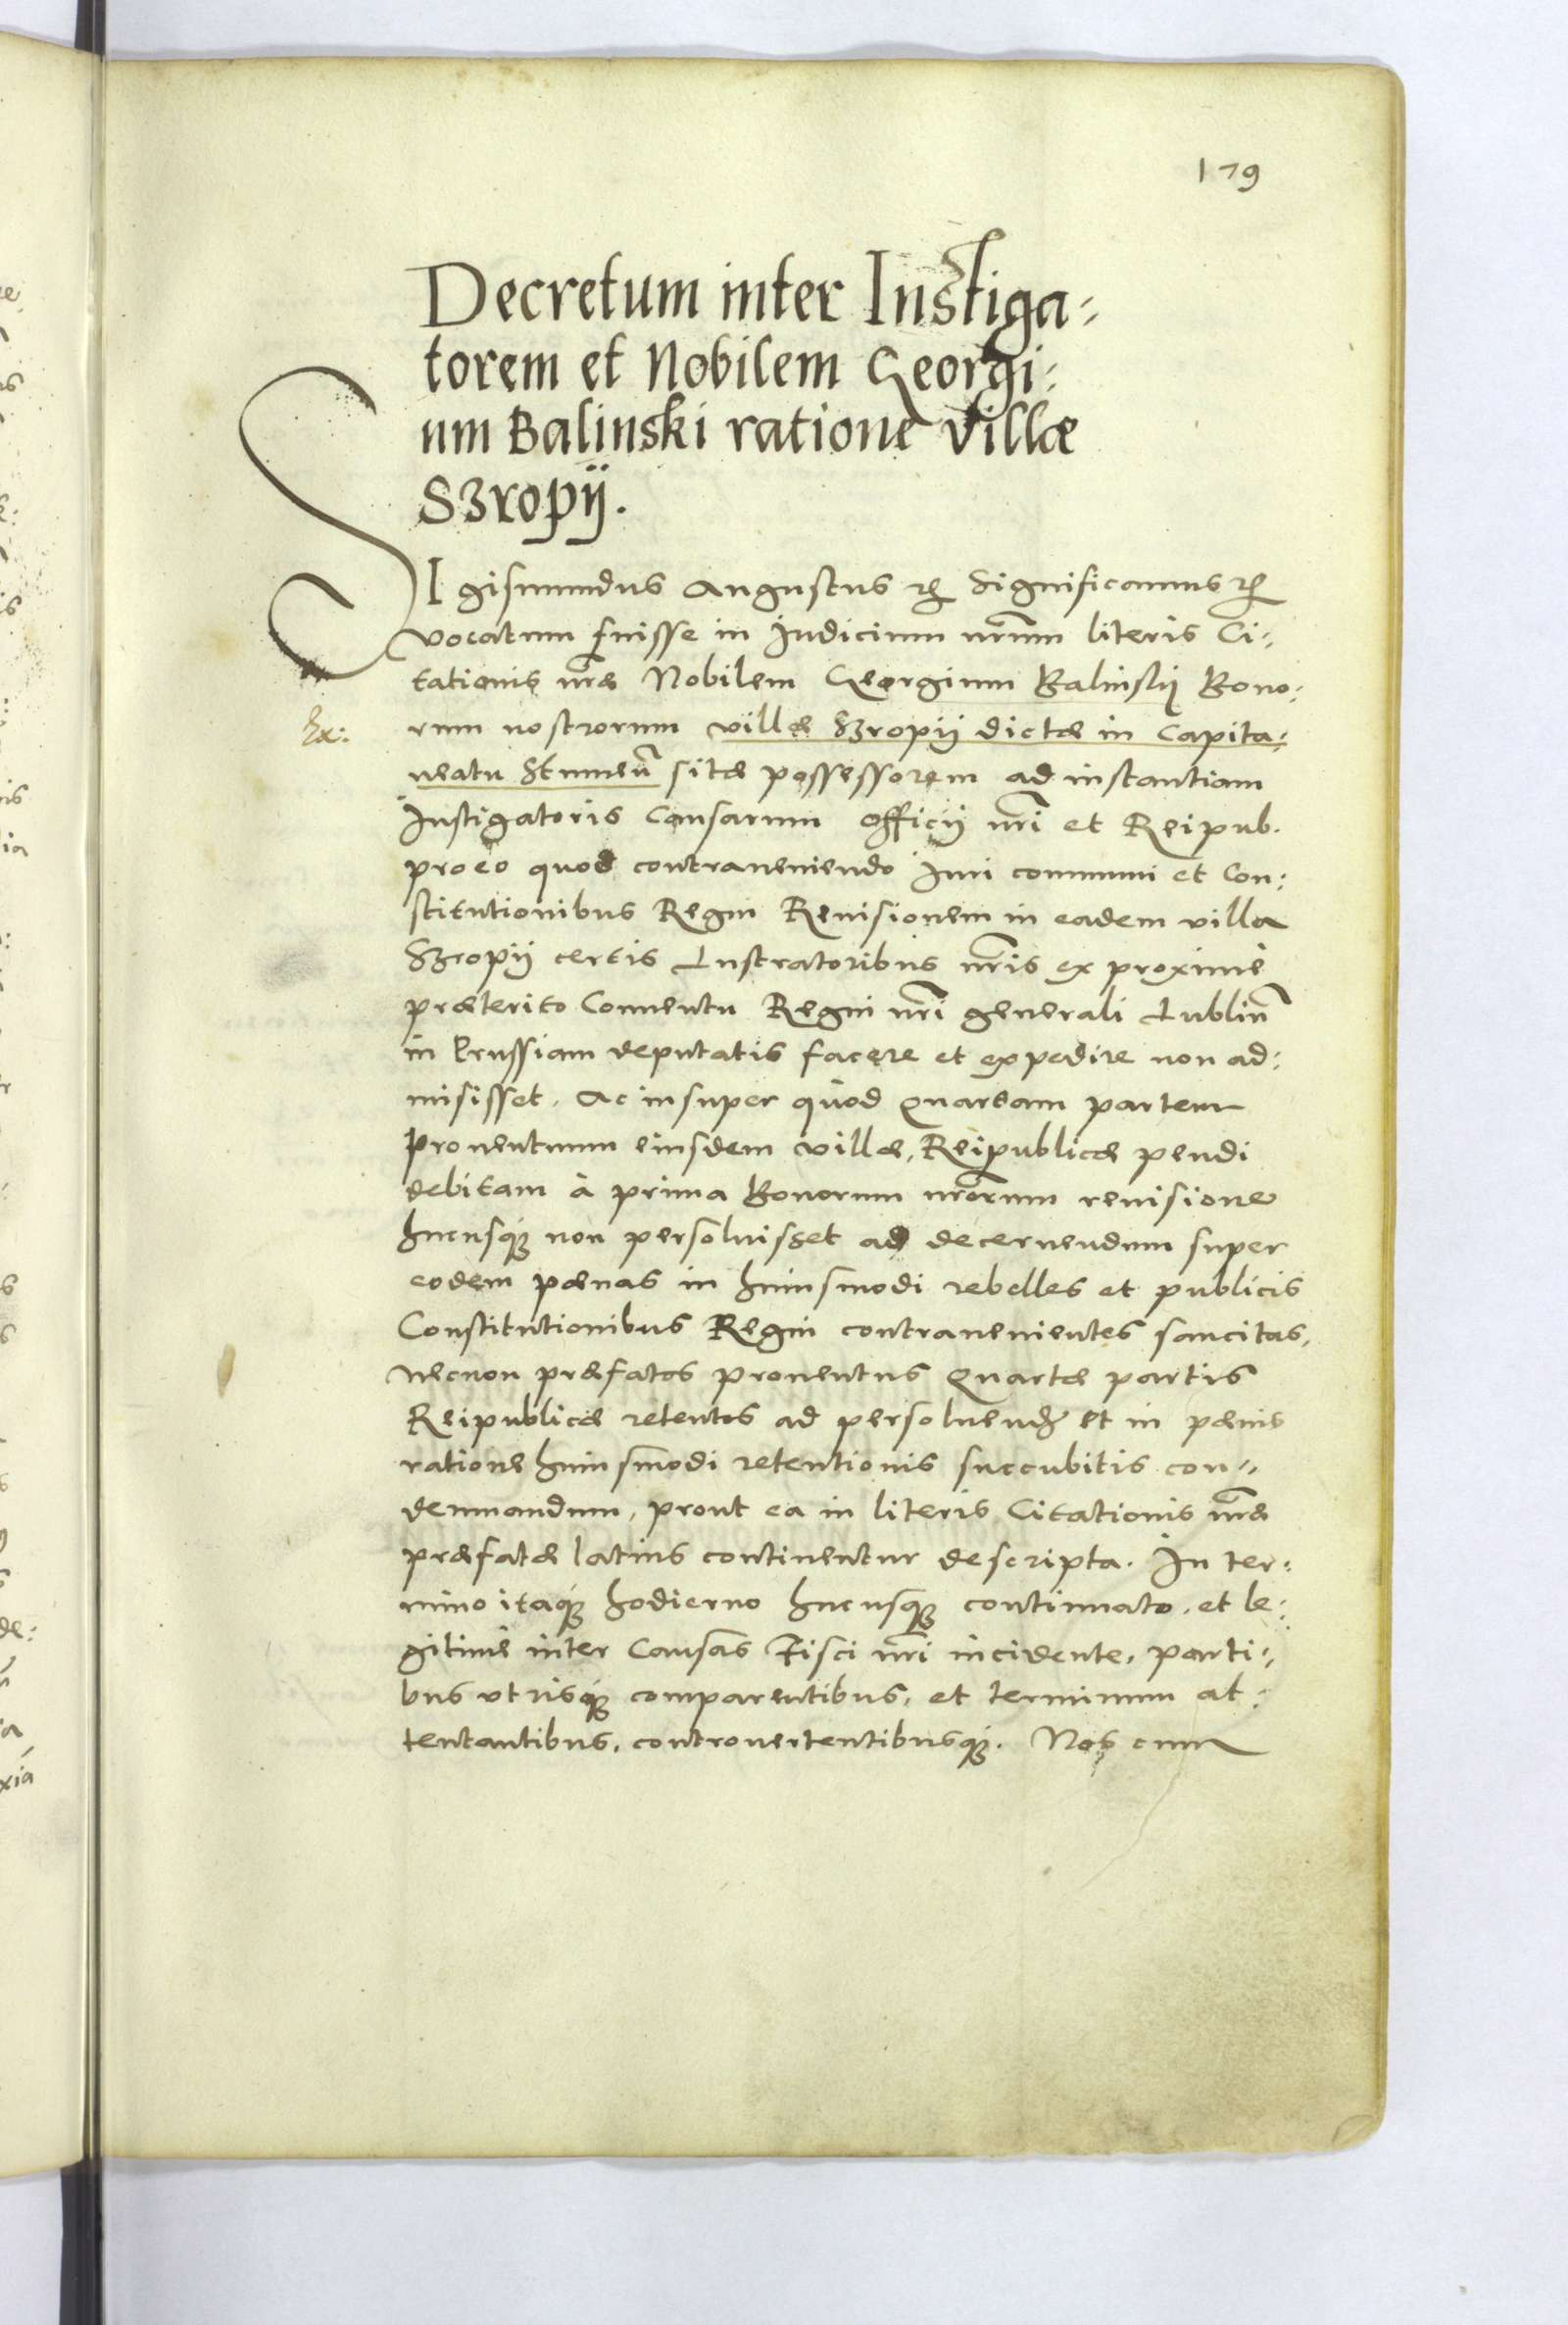 179
Decretum inter Instiga-
torem et Nobilem Georgi-
um Balinski ratione villæ
Szropÿ.
SIgismundus Augustus etc Significamus etc
vocatum fuisse in Iudicium nr̃um literis Ci-
tationis nr̃æ Nobilem Georgium Balinsky Bono-
Ex:
rum nostrorum villæ Szropÿ dictæ in Capita-
neatu Stumeñ sitæ possessorem ad instantiam
Instigatoris Causarum Officÿ nr̃i et Reipub.
pro eo quod contraueniendo Iuri communi et Con-
stitutionibus Regni Reuisionem in eadem villa
Szropÿ certis Lustratoribus nr̃is ex proximè
præterito Conuentu Regni nr̃i generali Lubliñ
in Prussiam deputatis facere et expedire non ad-
misisset. Ac insuper quòd Quartam partem
prouentuum eiusdem villæ, Reipublicæ pendi
debitam à prima Bonorum nr̃orum reuisione
hucusq; non persoluisset ad decernendum super
eodem pænas in huiusmodi rebelles et publicis
Constitutionibus Regni contrauenientes sancitas,
necnon præfatos prouentus Quartæ partis
Reipublicæ retentos ad persoluend̃ et in pænis
ratione huiusmodi retentionis succubitis con-
demnandum, prout ea in literis Citationis nr̃æ
præfatæ latius continentur descripta. In ter-
mino itaq; hodierno hucusq; continuato, et le-
gitimè inter Causas Fisci nr̃i incidente, parti-
bus vtrisq; comparentibus, et terminum at-
tentantibus, controuertentibusq;. Nos cum